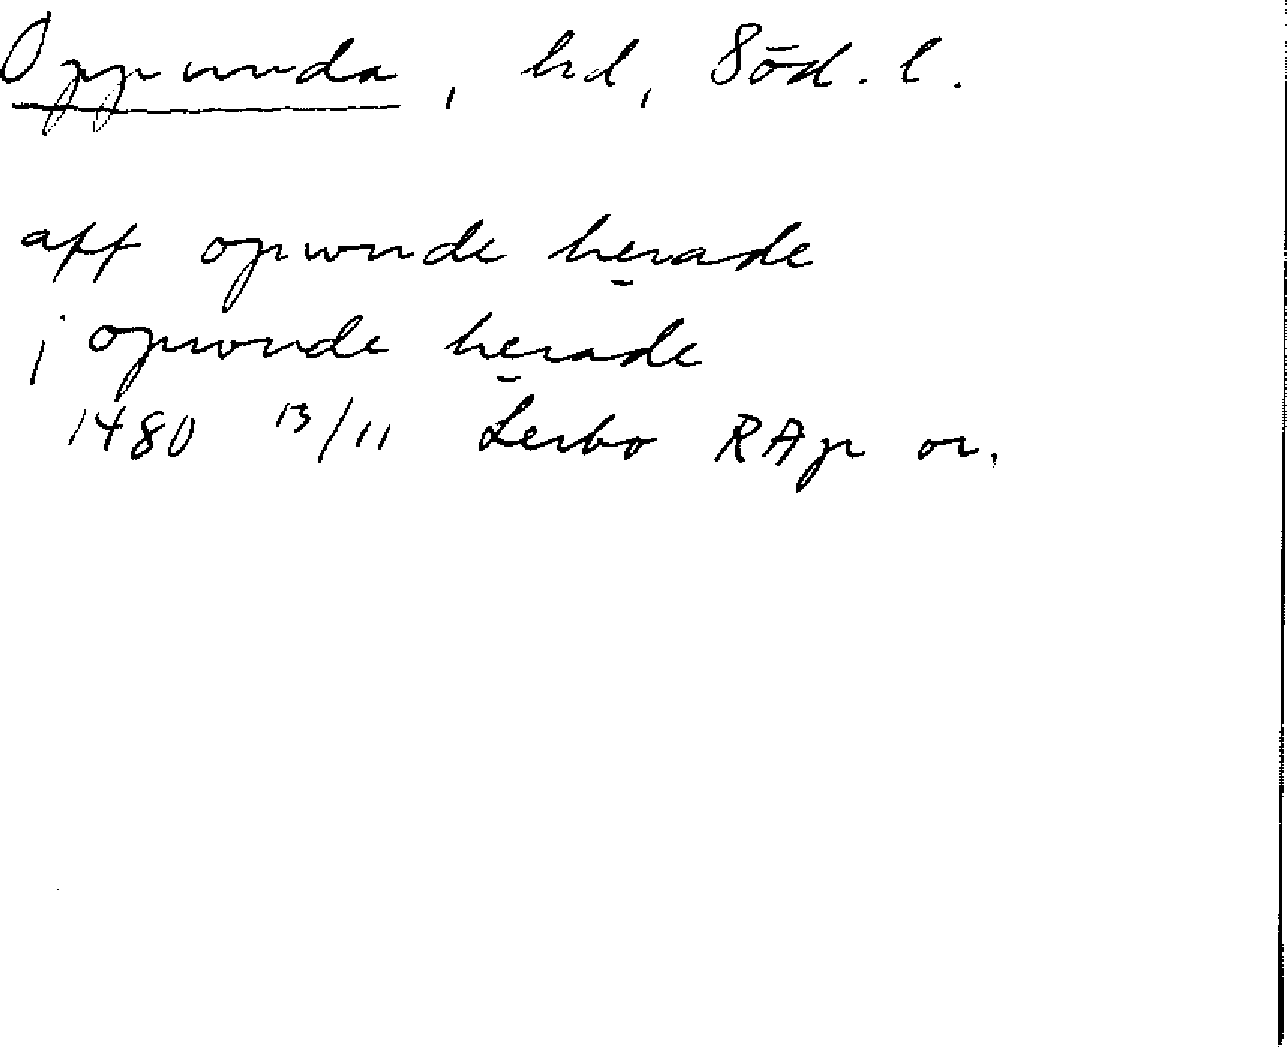 Oppunda, hd, Söd. l.
aff opwnde herade
j opwnde herade
1480 13/11 Lerbo RAp or.